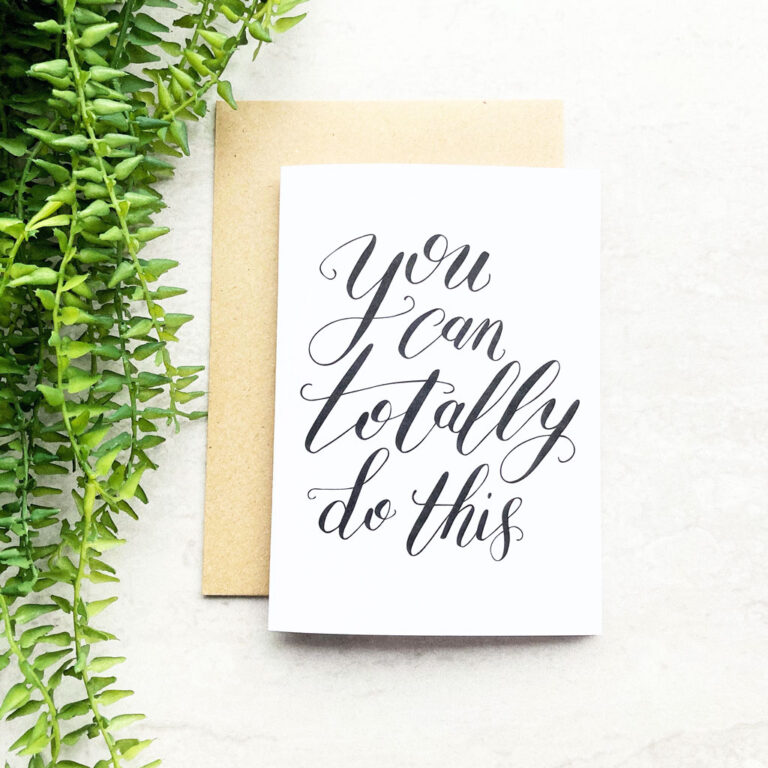 you
can
totally
do this